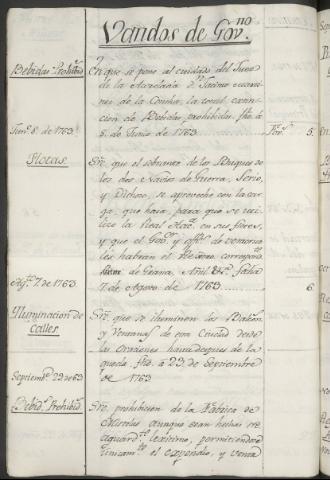 Vandos de Gov.no
Bebidas Prohibid.s
En que se pone al cuidado del Juez
de la Acordada D.n Jacinto
de la Concha, la comis.n
cion de Bebidas prohibidas. fho á
5. de Junio de 1763
5.
Jun.o 5. de 1763.
Flotas
Srē. que el sobrante de los Buques de
los dos Navios de Guerra,
y Dichoso, se aproveche con la car
ga, que haia, para que se
la Real Haz.da en sus fletes,
y que el Gov.or y offi.s de
les habran el Rexistro
fecha
7. de Agosto de 1763
6.
Ag.to 7. de 1763
Iluminacion de
Calles
Srē. que se iluminen los Balcon.s
y Ventanas de esta Ciudad desde
las Oraciones hasta despues de la
queda, fho. á 29. de Septiembre
de 1763
Septiemb.e 29 de 63
Bebid.s Prohibid.s
Srē. prohibicion de la Fabrica de
Mistelas aunque sean hechas de
Aguard.te lexitimo, permitiendose
unicam.te el expendio, y venta